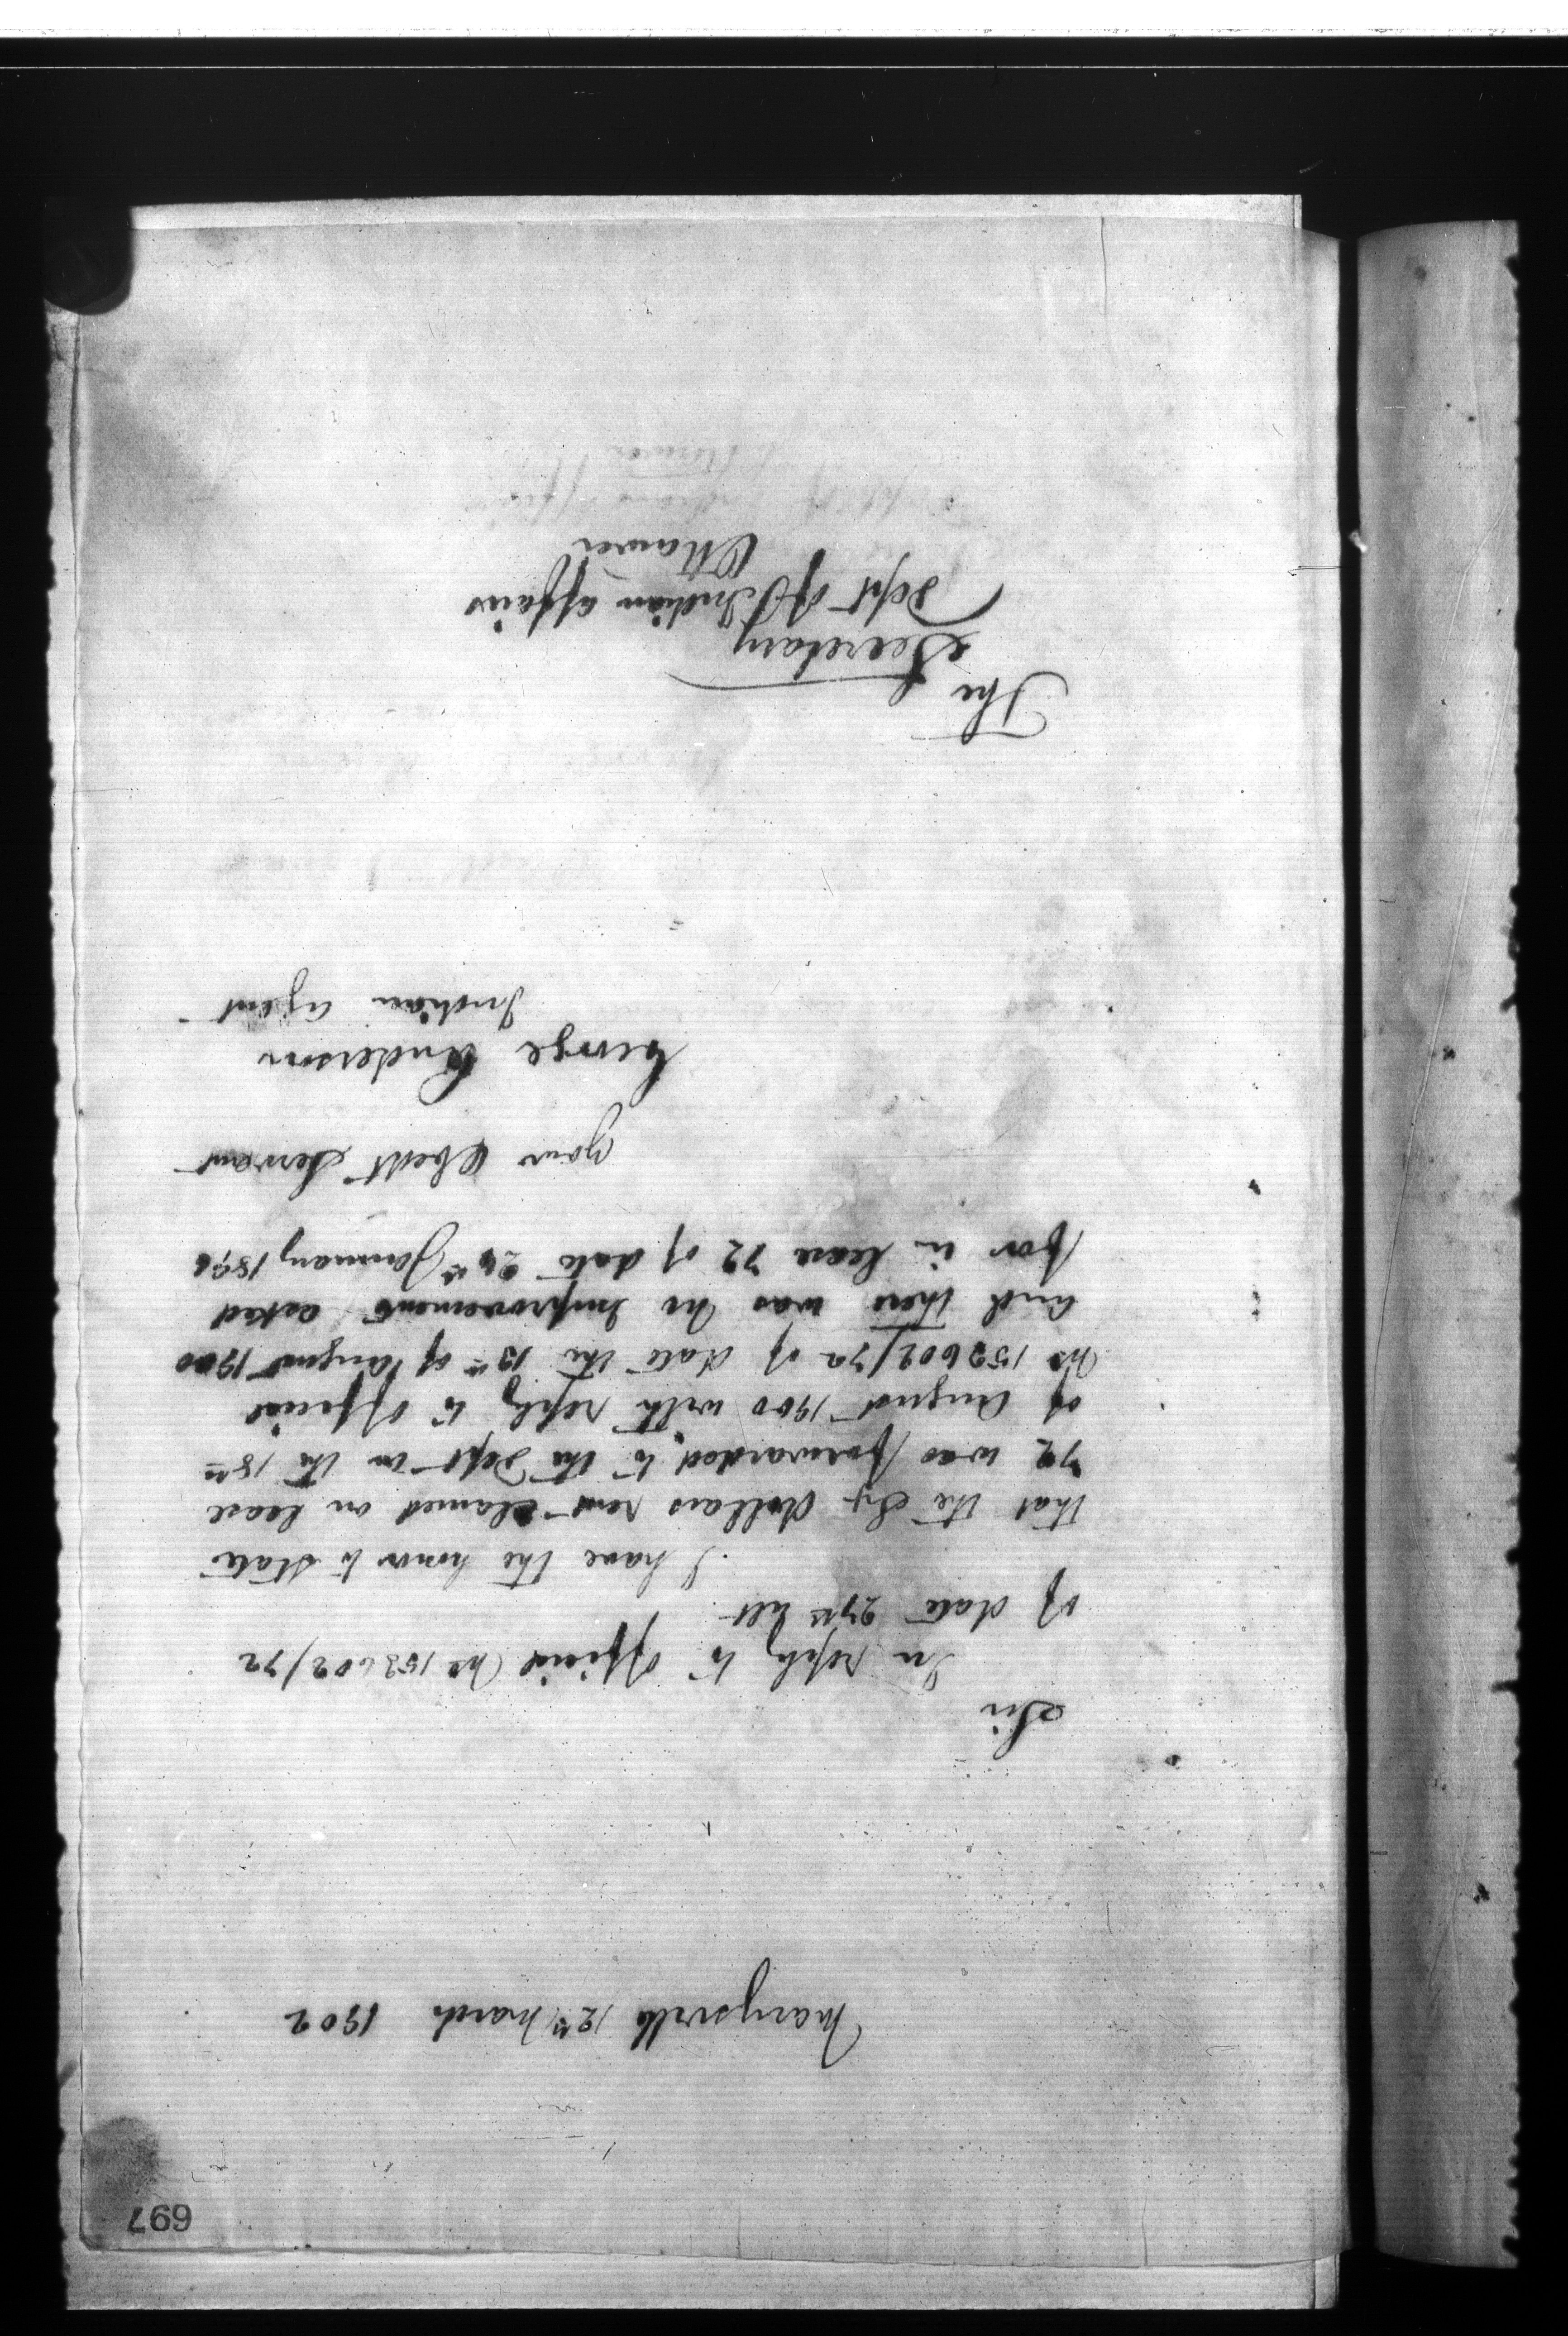 697
Marysville 12th March 1902
Sir
In reply to Official No 152602/72
of date 27th ult
I have the honor to state
that the Six dollars rent claimed on lease
72 was forwarded to the Dept on the 18th
of August 1900 with reply to Official
No 152602/72 of date the 13th of August 1900
and there was no Improvements asked
for in lease 72 of date 24th January 1896
your Obedt Servant
George Anderson
Indian Agent
The
Secretary
Dept of Indian Affairs
Ottawa